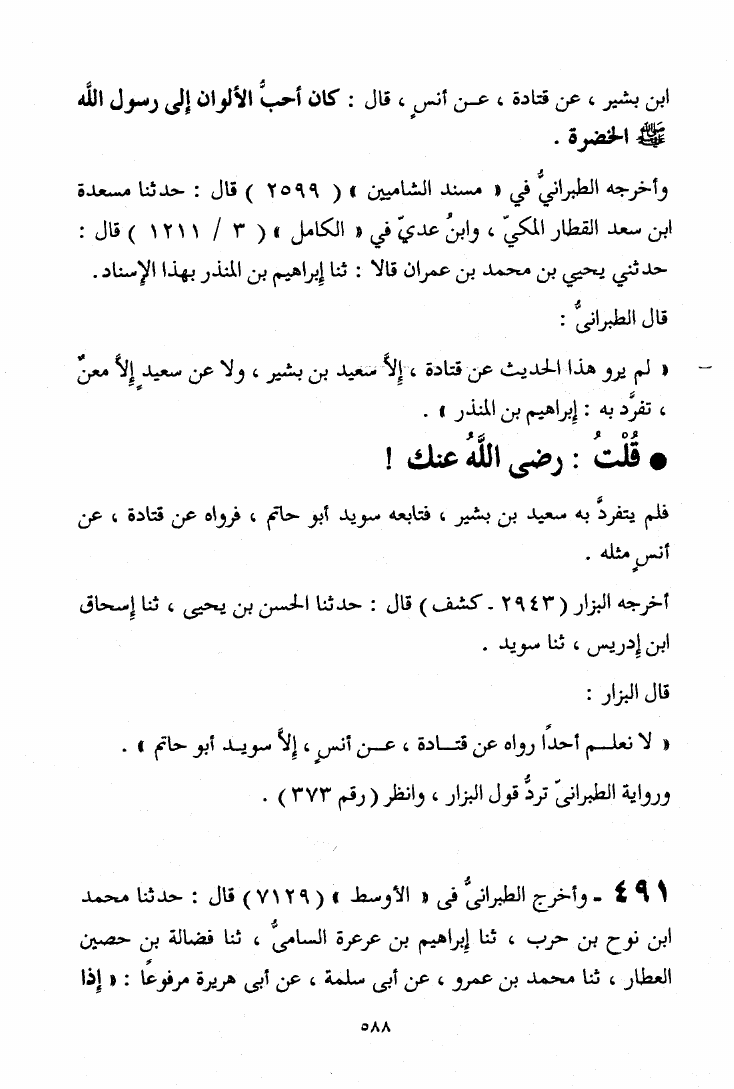 ابن بشير ، عن قتادة ، عـن أنسٍ ، قال : كان أحبُّ الألوان إلى رسول الله
ﷺ الخضرة .
وأخرجه الطبرانيُّ في « مسند الشاميين » ( ٢٥٩٩ ) قال : حدثنا مسعدة
ابن سعد القطار المكيّ ، وابنُ عديّ في « الكامل » ( ٣ / ١٢١١ ) قال :
حدثني يحيي بن محمد بن عمران قالا : ثنا إبراهيم بن المنذر بهذا الإسناد .
قال الطبرانىُّ :
« لم يرو هذا الحديث عن قتادة ، إلاَّ سعيد بن بشير ، ولا عن سعيدٍ إلاَّ معنٌ
، تفرَّد به : إبراهيم بن المنذر » .
● قُلْتُ : رضى اللَّهُ عنك !
فلم يتفردَّ به سعيد بن بشير ، فتابعه سويد أبو حاتم ، فرواه عن قتادة ، عن
أنسٍ مثله .
أخرجه البزار ( ٢٩٤٣ ـ كشف ) قال : حدثنا الحسن بن يحيى ، ثنا إسحاق
ابن إدريس ، ثنا سويد .
قال البزار :
« لا نعلـم أحدًا رواه عن قتـادة ، عـن أنسٍ ، إلاَّ سويـد أبو حاتم » .
ورواية الطبرانىّ تردُّ قول البزار ، وانظر ( رقم ٣٧٣ ) .
٤٩١ ـ وأخرج الطبرانىُّ فى « الأوسط » ( ٧١٢٩ ) قال : حدثنا محمد
ابن نوح بن حرب ، ثنا إبراهيم بن عرعرة السامىُّ ، ثنا فضالة بن حصين
العطار ، ثنا محمد بن عمرو ، عن أبى سلمة ، عن أبى هريرة مرفوعًا : « إذا
٥٨٨